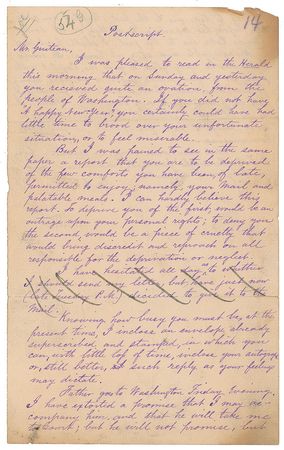 549
14
Postscript.
Mr. Guiteau.
I was pleased to read in the Herald
this morning that on Sunday and yesterday
you recieved quite an ovation, from the
people of Washington. If you did not have
"A happy New Year," you certainly could have had
little time to brood over your unfortunate
situation, or to feel miserable.
But I was pained to see in the same
paper a report that you are to be deprived
of the few comforts you have been, of late,
permitted to enjoy; namely, your mail and
palatable meals. I can hardly believe this
report. To deprive you of the first, would be an
outrage upon your personal rights; to deny you
the second, would be a piece of cruelty that
would bring discredit and reproach on all
responsible for the deprivation or neglect.
I have hesitated all day, as to whether
I should send my letter, but have just now
(late Tuesday P.M.) decided to give it to the
Mail.
Knowing how busy you must be, at the
present time, I inclose an envelope already
superscribed, and stamped, in which you
can, with little loss of time, inclose your autograph
or, still better, such reply as your feelings
may dictate.
Father goes to Washington Friday Evening.
I have extorted a promise that I may ac-
company him, and that he will take me
to Court; but he will not promise, but